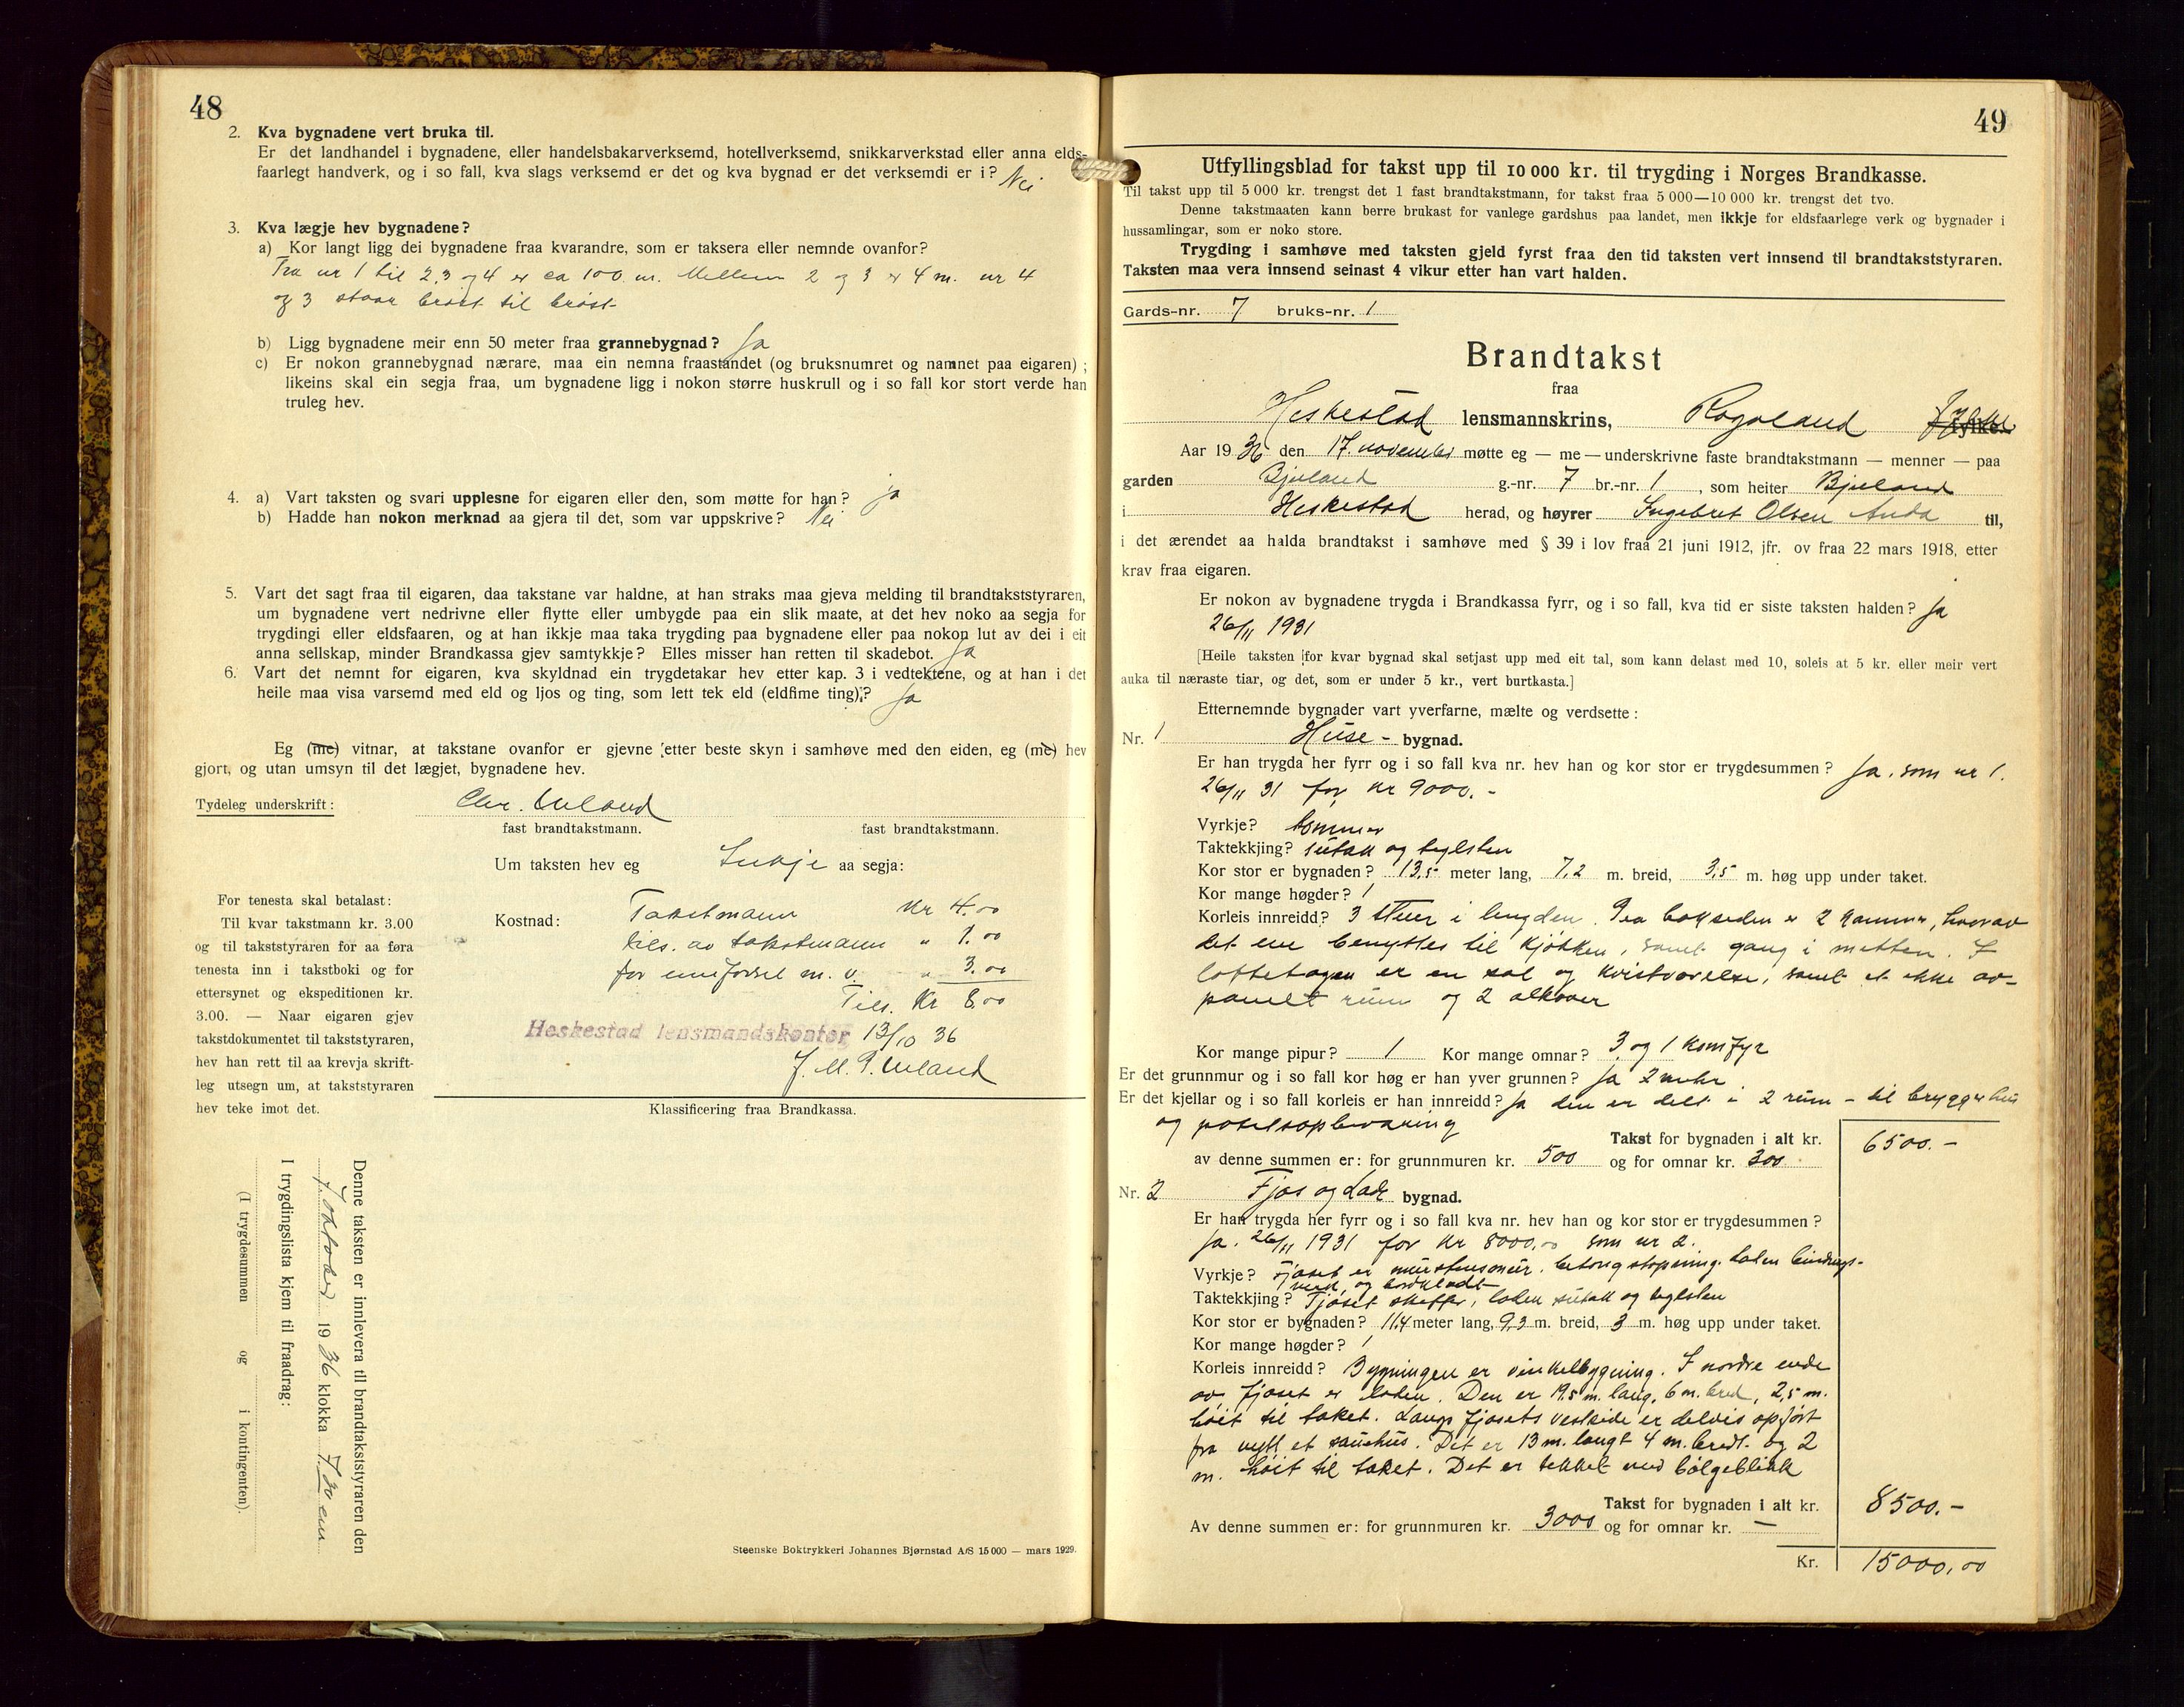 48
2. Kva bygnadene vert bruka til.
Er det landhandel i bygnadene, eller handelsbakarverksemd, hotellverksemd, snikkarverkstad eller anna elds-
faarlegt handverk, og i so fall, kva slags verksemd er det og kva bygnad er det verksemdi er i? Nei
3. Kva lægje hev bygnadene?
a) Kor langt ligg dei bygnadene fraa kvarandre, som er taksera eller nemnde ovanfor?
Fra nr 1 til 2,3 og 4 er ca 100 m. Mellem 2 og 3 er 4 m. nr 4
og 3 staar brøst til brøst
b) Ligg bygnadene meir enn 50 meter fraa grannebygnad? Ja
c) Er nokon grannebygnad nærare, maa ein nemna fraastandet (og bruksnumret og namnet paa eigaren) ;
likeins skal ein segja fraa, um bygnadene ligg i nokon større huskrull og i so fall kor stort verde han
truleg hev.
4. a) Vart taksten og svari upplesne for eigaren eller den, som møtte for han? ja
b) Hadde han nokon merknad aa gjera til det, som var uppskrive? Nei
5. Vart det sagt fraa til eigaren, daa takstane var haldne, at han straks maa gjeva melding til brandtakststyraren,
um bygnadene vert nedrivne eller flytte eller umbygde paa ein slik maate, at det hev noko aa segja for
trygdingi eller eldsfaaren, og at han ikkje maa taka trygding paa bygnadene eller paa nokon lut av dei i eit
anna sellskap, minder Brandkassa gjev samtykkje? Elles misser han retten til skadebot. Ja
6. Vart det nemnt for eigaren, kva skyldnad ein trygdetakar hev etter kap. 3 i vedtektene, og at han i det
heile maa visa varsemd med eld og ljos og ting, som lett tek eld (eldfime ting)? Ja
Eg (me) vitnar, at takstane ovanfor er gjevne etter beste skyn i samhøve med den eiden, eg (me) hev
gjort, og utan umsyn til det lægjet, bygnadene hev.
Tydeleg underskrift: Chr. Ueland
fast brandtakstmann. fast brandtakstmann.
Um taksten hev eg Inkje aa segja:
For tenesta skal betalast:
Til kvar takstmann kr. 3.00
og til takststyraren for aa føra
tenesta inn i takstboki og for
ettersynet og ekspeditionen kr.
3.00. — Naar eigaren gjev
takstdokumentet til takststyraren,
hev han rett til aa krevja skrift-
leg utsegn um, at takststyraren
hev teke imot det.
Kostnad: Takstmann Kr 4.00
tils. av takstmann " 1.00
for innførsel m. v. " 3.00
Tils. Kr 8.00
Heskestad lensmandskontor 13/10 36
J. M. P. Ueland
Klassificering fraa Brandkassa.
Denne taksten er innlevera til brandtakststyraren den
7. oktober 1936 klokka 7.30 em
I trygdingslista kjem til fraadrag:
(I trygdesummen og i kontingenten).
Steenske Boktrykkeri Johannes Bjørnstad A/S 15 000 — mars 1929.
49
Utfyllingsblad for takst upp til 10 000 kr. til trygding i Norges Brandkasse.
Til takst upp til 5 000 kr. trengst det 1 fast brandtakstmann, for takst fraa 5 000—10 000 kr. trengst det tvo.
Denne takstmaaten kann berre brukast for vanlege gardshus paa landet, men ikkje for eldsfaarlege verk og bygnader i
hussamlingar, som er noko store.
Trygding i samhøve med taksten gjeld fyrst fraa den tid taksten vert innsend til brandtakststyraren.
Taksten maa vera innsend seinast 4 vikur etter han vart halden.
Gards-nr. 7 bruks-nr. 1
Brandtakst
fraa
Heskestad lensmannskrins, Rogaland fylke.
Aar 1936 den 17. november møtte eg — me — underskrivne faste brandtakstmann — menner — paa
garden Bjuland g.-nr. 7 br.-nr. 1, som heiter Bjuland
i Heskestad herad, og høyrer Ingebret Olsen Anda til,
i det ærendet aa halda brandtakst i samhøve med § 39 i lov fraa 21 juni 1912, jfr. ov fraa 22 mars 1918, etter
krav fraa eigaren.
Er nokon av bygnadene trygda i Brandkassa fyrr, og i so fall, kva tid er siste taksten halden? Ja
26/11 1931
[Heile taksten for kvar bygnad skal setjast upp med eit tal, som kann delast med 10, soleis at 5 kr. eller meir vert
auka til næraste tiar, og det, som er under 5 kr., vert burtkasta.]
Etternemnde bygnader vart yverfarne, mælte og verdsette :
Nr. 1 Huse- bygnad.
Er han trygda her fyrr og i so fall kva nr. hev han og kor stor er trygdesummen? Ja. som nr 1.
26/11 31 for kr 9000.-
Vyrkje? tømmer
Taktekkjing? sutak og teglsten
Kor stor er bygnaden? 13,5 meter lang, 7,2 m. breid, 3,5 m. høg upp under taket.
Kor mange høgder? 1
Korleis innreidd? 3 stuer i lengden. Paa baksiden er 2 kammer, hvorav
det ene benyttes til kjøkken, samt gang i midten. I
loftetagen er en sal og kvistværelse, samt et ikke av-
panelt rum og 2 alkover
Kor mange pipur? 1 Kor mange omnar? 3 og 1 komfyr
Er det grunnmur og i so fall kor høg er han yver grunnen? Ja 2 meter.
Er det kjellar og i so fall korleis er han innreidd? Ja den er delt i 2 rum - til bryggerhus
og potetsopbevaring
Takst for bygnaden i alt kr. 6500.-
av denne summen er: for grunnmuren kr. 500 og for omnar kr. 300
Nr. 2 Fjøs og Lade bygnad.
Er han trygda her fyrr og i so fall kva nr. hev han og kor stor er trygdesummen?
Ja. 26/11 1931 for kr 8000,00 som nr 2.
Vyrkje? Fjøset er murstensmur. betongstøpning. Laden bindings-
verk og bordklædt
Taktekkjing? Fjøset skiffer, laden sutak og teglsten
Kor stor er bygnaden? 11.4 meter lang, 9,3 m. breid, 3 m. høg upp under taket.
Kor mange høgder? 1
Korleis innreidd? Bygningen er vinkelbygning. I nordre ende
av fjøset er laden. Den er 19.5 m. lang, 6 m. bred, 2,5 m.
høit til taket. Langs fjøsets vestside er delvis opført
fra nytt et sauehus. Det er 13 m. langt 4 m. bredt. og 2
m. høit til taket. Det er tekket med bølgeblikk
Takst for bygnaden i alt kr. 8500.-
Av denne summen er: for grunnmuren kr. 3000 og for omnar kr. —
Kr. 15000,00